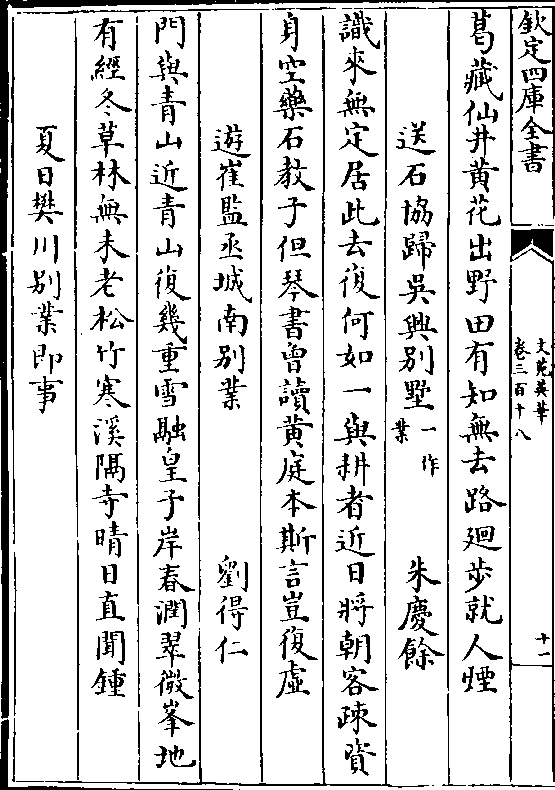 欽定四庫全書
文苑英華
卷三百十八
十一
葛藏仙井黄花出野田有知無去路廻步就人煙
送石協歸吳興别墅一作業
朱慶餘
識來無定居此去復何如一與耕者近日將朝客疎資
身空藥石教子但琴書曾讀黄庭本斯言豈復虚
遊崔監丞城南别業
劉得仁
門與青山近青山復幾重雪融皇子岸春潤翠微峯地
有經冬草林無未老松竹寒溪隔寺晴日直聞鍾
夏日樊川别業即事